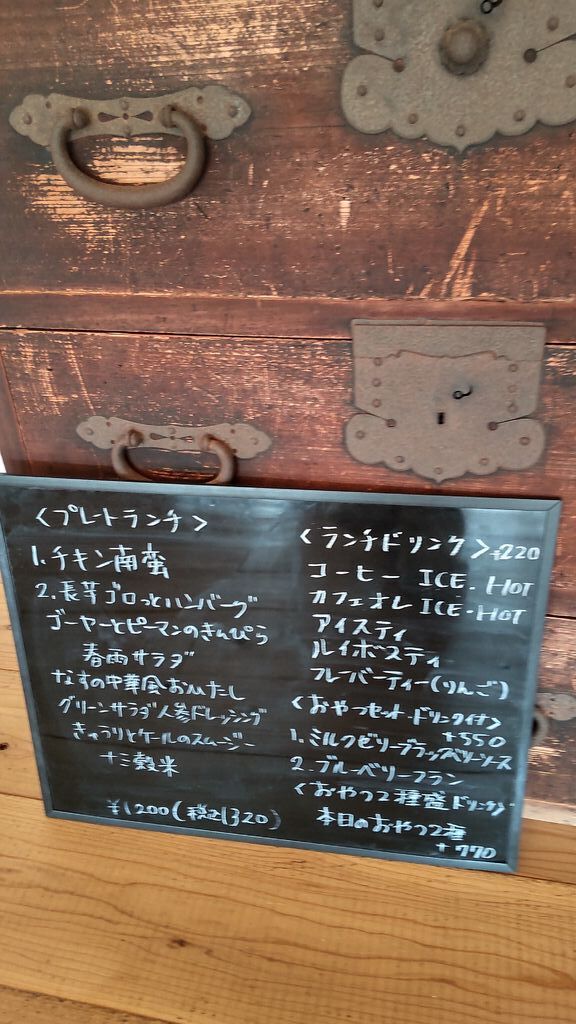 <プレートランチ>
1.チキン南蛮
2.長芋ゴロっとハンバーグ
ゴーヤーとピーマンのきんぴら
春雨サラダ
なすの中華風おひたし
グリーンサラダ人参ドレッシング
きゅうりとケールのスムージー
十三穀米
¥1200(税込1320)
<ランチドリンク>¥220
コーヒー ICE・HOT
カフェオレ ICE・HOT
アイスティ
ルイボスティ
フレーバーティー(りんご)
<おやつセットドリンク付>
+550
1.ミルクゼリーブラックベリーソース
2.ブルーベリーフラン
<おやつ2種盛ドリンク>
本日のおやつ2種
+770